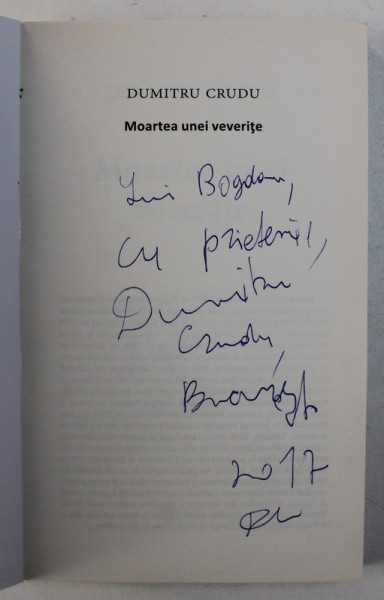 DUMITRU CRUDU
Moartea unei veverițe
Lui Bogdan,
cu prietenie,
Dumitru
Crudu,
2017